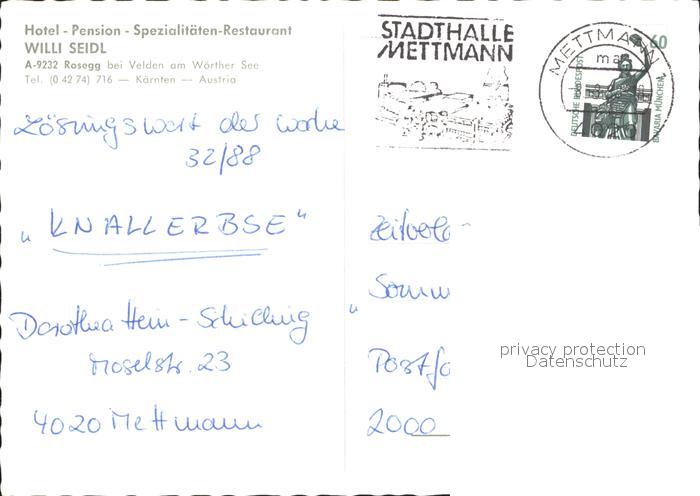 Hotel - Pension - Spezialitäten-Restaurant
WILLI SEIDL
A-9232 Rosegg bei Velden am Wörther See
Tel. (0 42 74) 716 — Kärnten — Austria
STADTHALLE
METTMANN
METTMANN 1
ma
60
DEUTSCHE BUNDESPOST
BAVARIA MÜNCHEN
Lösungswort der Woche
32/88
„KNALLERBSE"
Dorothea Hein-Schilling
Moselstr. 23
4020 Mettmann
„Somm
Postfa
2000
privacy protection
Datenschutz